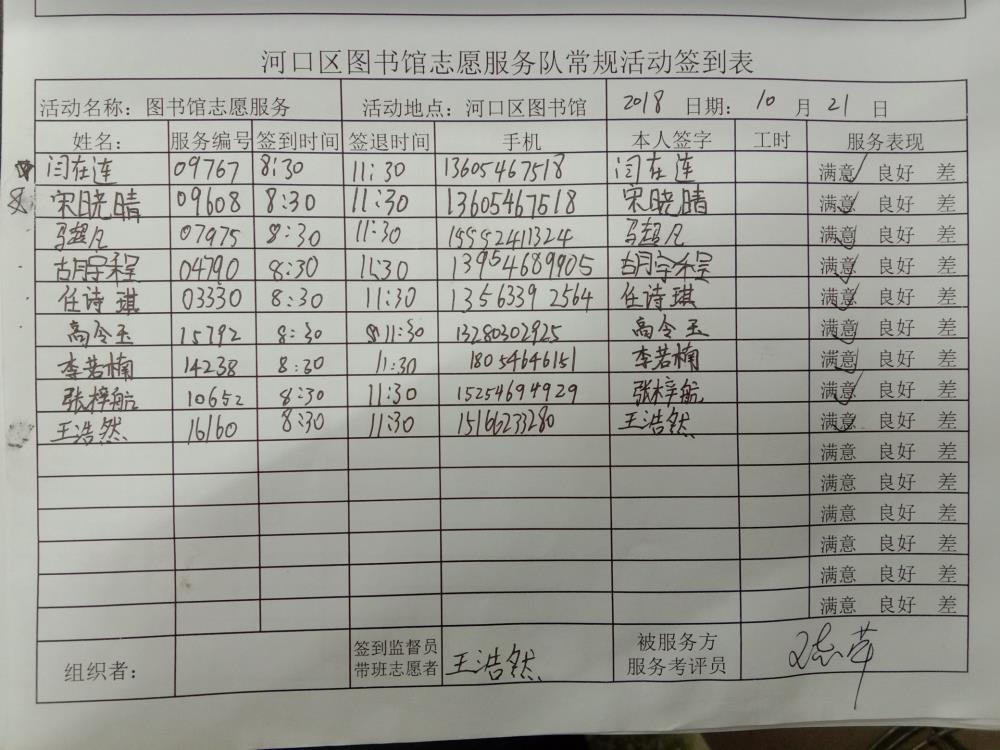 河口区图书馆志愿服务队常规活动签到表
活动名称：图书馆志愿服务 活动地点：河口区图书馆 2018 日期： 10 月 21 日
姓名： 服务编号 签到时间 签退时间 手机 本人签字 工时 服务表现
闫在连 09767 8:30 11:30 13605467518 闫在连 满意 良好 差
宋晓晴 09608 8:30 11:30 13605467518 宋晓晴 满意 良好 差
马超凡 07975 8:30 11:30 15552411324 马超凡 满意 良好 差
胡宇程 04790 8:30 11:30 13954689905 胡宇程 满意 良好 差
任诗琪 03330 8:30 11:30 13563392564 任诗琪 满意 良好 差
高令玉 15792 8:30 11:30 13280302925 高令玉 满意 良好 差
李若楠 14238 8:30 11:30 18054646151 李若楠 满意 良好 差
张梓航 10652 8:30 11:30 15254694929 张梓航 满意 良好 差
王浩然 16160 8:30 11:30 15166233280 王浩然 满意 良好 差
满意 良好 差
满意 良好 差
满意 良好 差
满意 良好 差
满意 良好 差
满意 良好 差
组织者： 签到监督员 带班志愿者 王浩然 被服务方 服务考评员